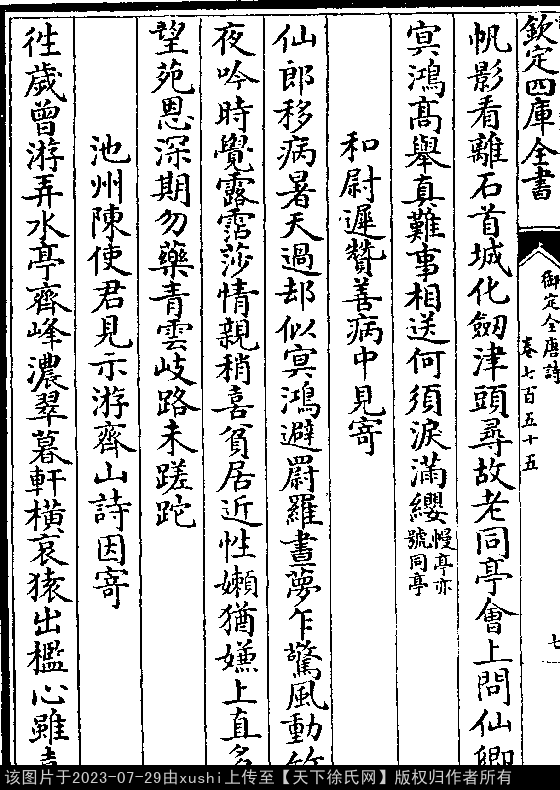 欽定四庫全書
御定全唐詩
卷七百五十五
七
帆影看離石首城化劒津頭尋故老同亭會上問仙卿
㝠鴻髙舉真難事相送何須淚滿纓
幔亭亦
號同亭
和尉遲贊善病中見寄
仙郎移病暑天過却似㝠鴻避罻羅晝夢乍驚風動
夜吟時覺露霑莎情親稍喜貧居近性嬾猶嫌上直多
望苑恩深期勿藥青雲岐路未蹉跎
池州陳使君見示游齊山詩因寄
徃歲曾游弄水亭齊峰濃翠暮軒橫哀猿出檻心雖
该图片于2023-07-29由xushi上传至【天下徐氏网】版权归作者所有